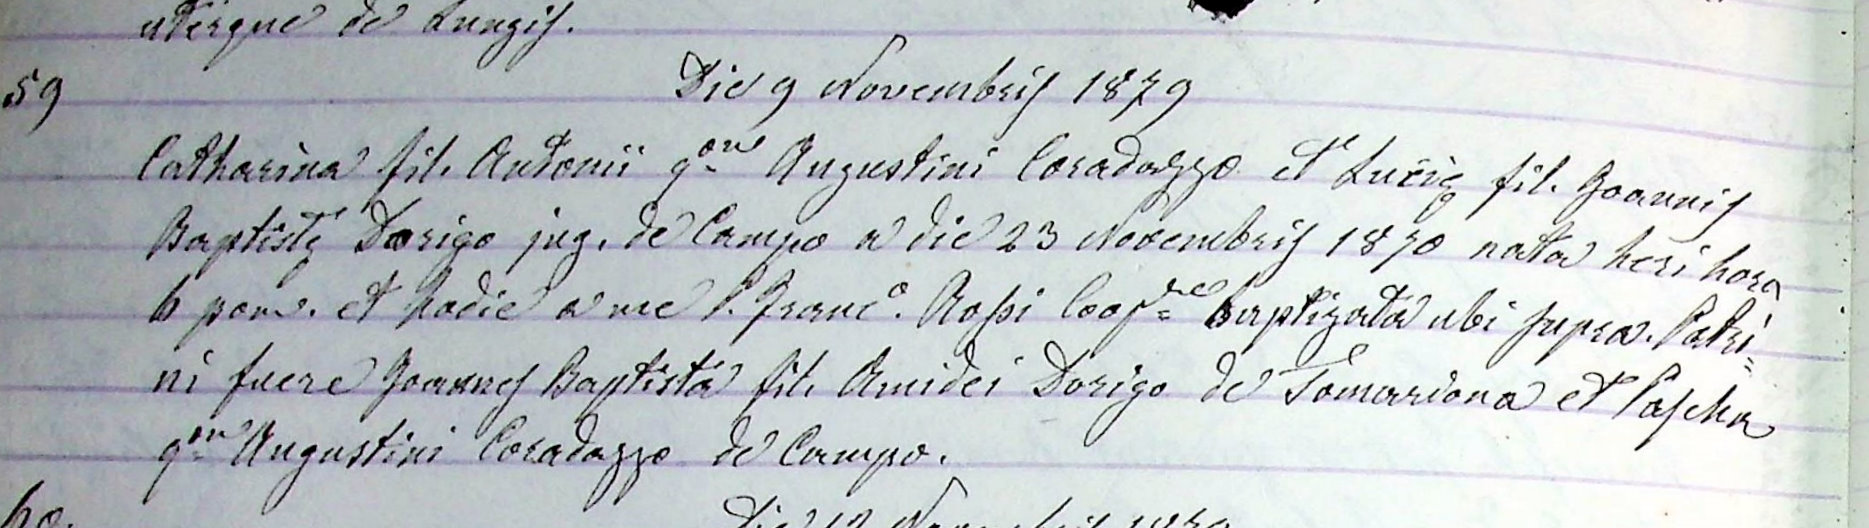 uterque de Lungis.
59
Die 9 Novembris 1879
Catharina fil. Antonii qm Augustini Coradazzo et Lucię fil. Joannis
Baptistę Dorigo jug. de Campo a die 23 Novembris 1870 nata heri hora
6 pom. et hodie a me P. Franco. Rossi Coopre baptizata ubi supra. Patri=
ni fuere Joannes Baptista fil. Amidei Dorigo de et Pascha
qm Augustini Coradazzo de Campo.
60.
Die 12 Novembris 1879